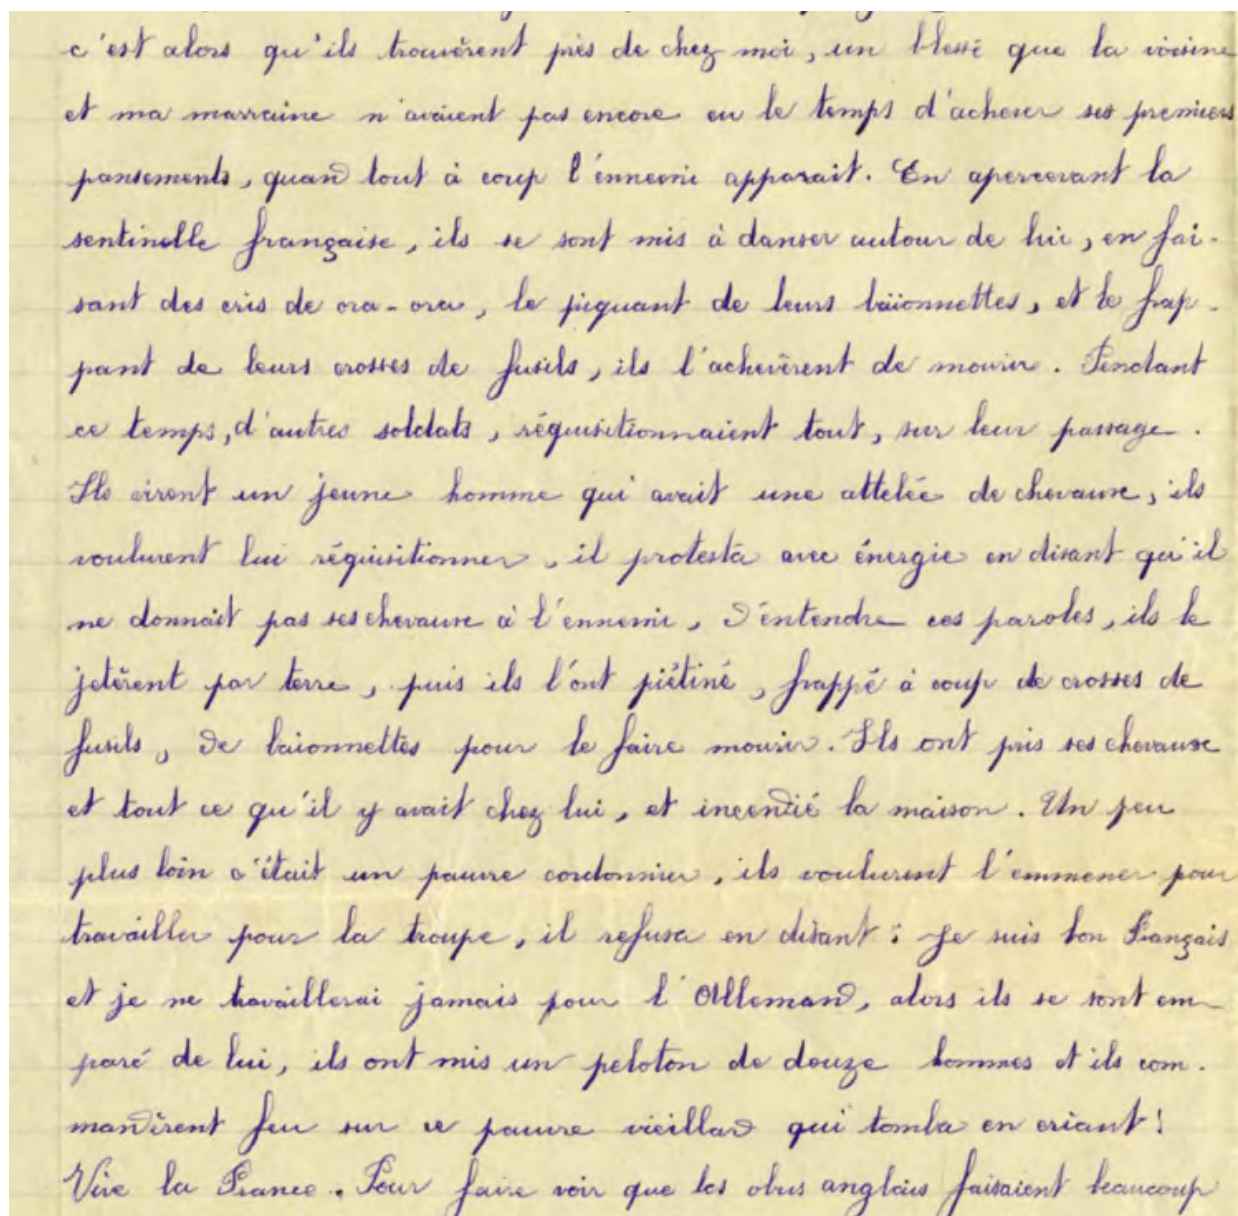 c'est alors qu'ils trouvèrent près de chez moi, un blessé que la voisine
et ma marraine n'avaient pas encore eu le temps d'achever ses premiers
pansements, quand tout à coup l'énnemi apparait. En apercevant la
sentinelle française, ils se sont mis à danser autour de lui, en fai-
sant des cris de ora-ora, le piquant de leurs baïonnettes, et le frap-
pant de leurs crosses de fusils, ils l'achevèrent de mourir. Pendant
ce temps, d'autres soldats, réquisitionnaient tout, sur leur passage.
Ils virent un jeune homme qui avait une attelée de chevaux, ils
voulurent lui réquisitionner, il protesta avec énergie en disant qu'il
ne donnait pas ses chevaux à l'énnemi, D'entendre ces paroles, ils le
jetèrent par terre, puis ils l'ont piétiné, frappé à coup de crosses de
fusils, de baionnettes pour le faire mourir. Ils ont pris ses chevaux
et tout ce qu'il y avait chez lui, et incendié la maison. Un peu
plus loin c'était un pauvre cordonnier, ils voulurent l'emmener pour
travailler pour la troupe, il refusa en disant : Je suis bon Français
et je ne travaillerai jamais pour l'Allemand, alors ils se sont em-
paré de lui, ils ont mis un peloton de douze hommes et ils com-
mandèrent feu sur ce pauvre vieillard qui tomba en criant !
Vive la France. Pour faire voir que les obus anglais faisaient beaucoup